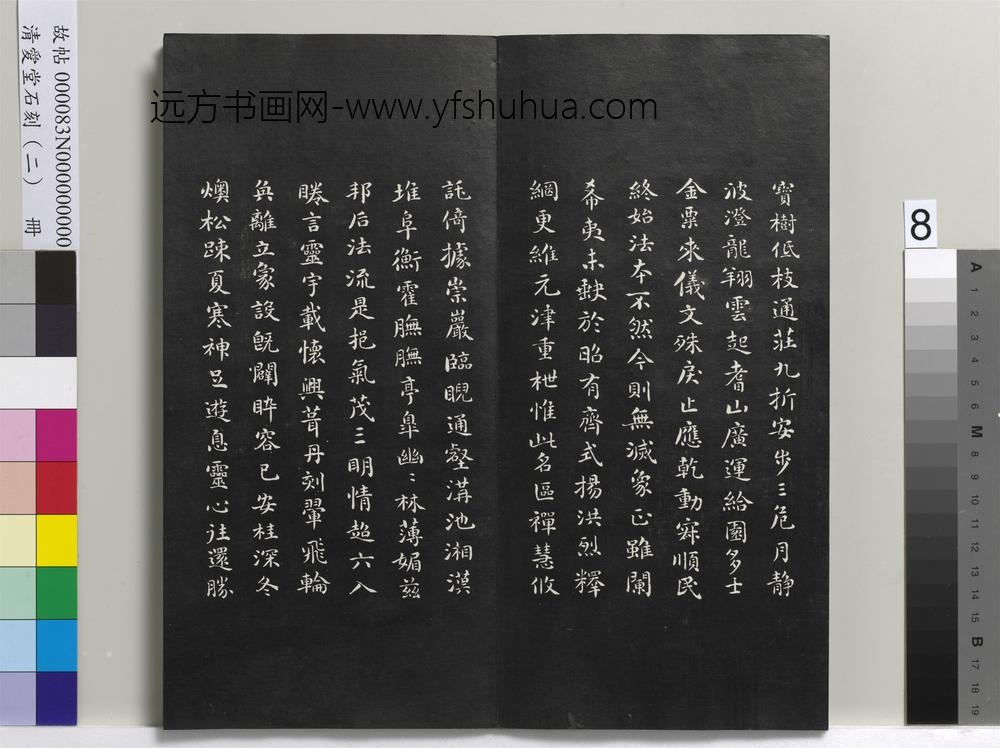 故帖 000083N000000000
清愛堂石刻（二） 冊
远方书画网-www.yfshuhua.com
寶樹低枝通莊九折安步三危月静
波澄龍翔雲起耆山廣運給園多士
金粟來儀文殊戾止應乾動寂順民
終始法本不然今則無滅象正雖闌
希夷未缺於昭有齊式揚洪烈釋
網更維元津重枻惟此名區禪慧攸
託倚據崇巖臨睨通壑溝池湘漢
堆阜衡霍膴膴亭皐幽〻林薄媚茲
邦后法流是挹氣茂三明情超六入
睠言靈宇載懷興葺丹刻翬飛輪
奐離立象設既闢睟容已安桂深冬
燠松踈夏寒神足遊息靈心往還勝
8
A 1 2 3 4 5 6 M 8 9 10 11 12 13 14 15 B 17 18 19